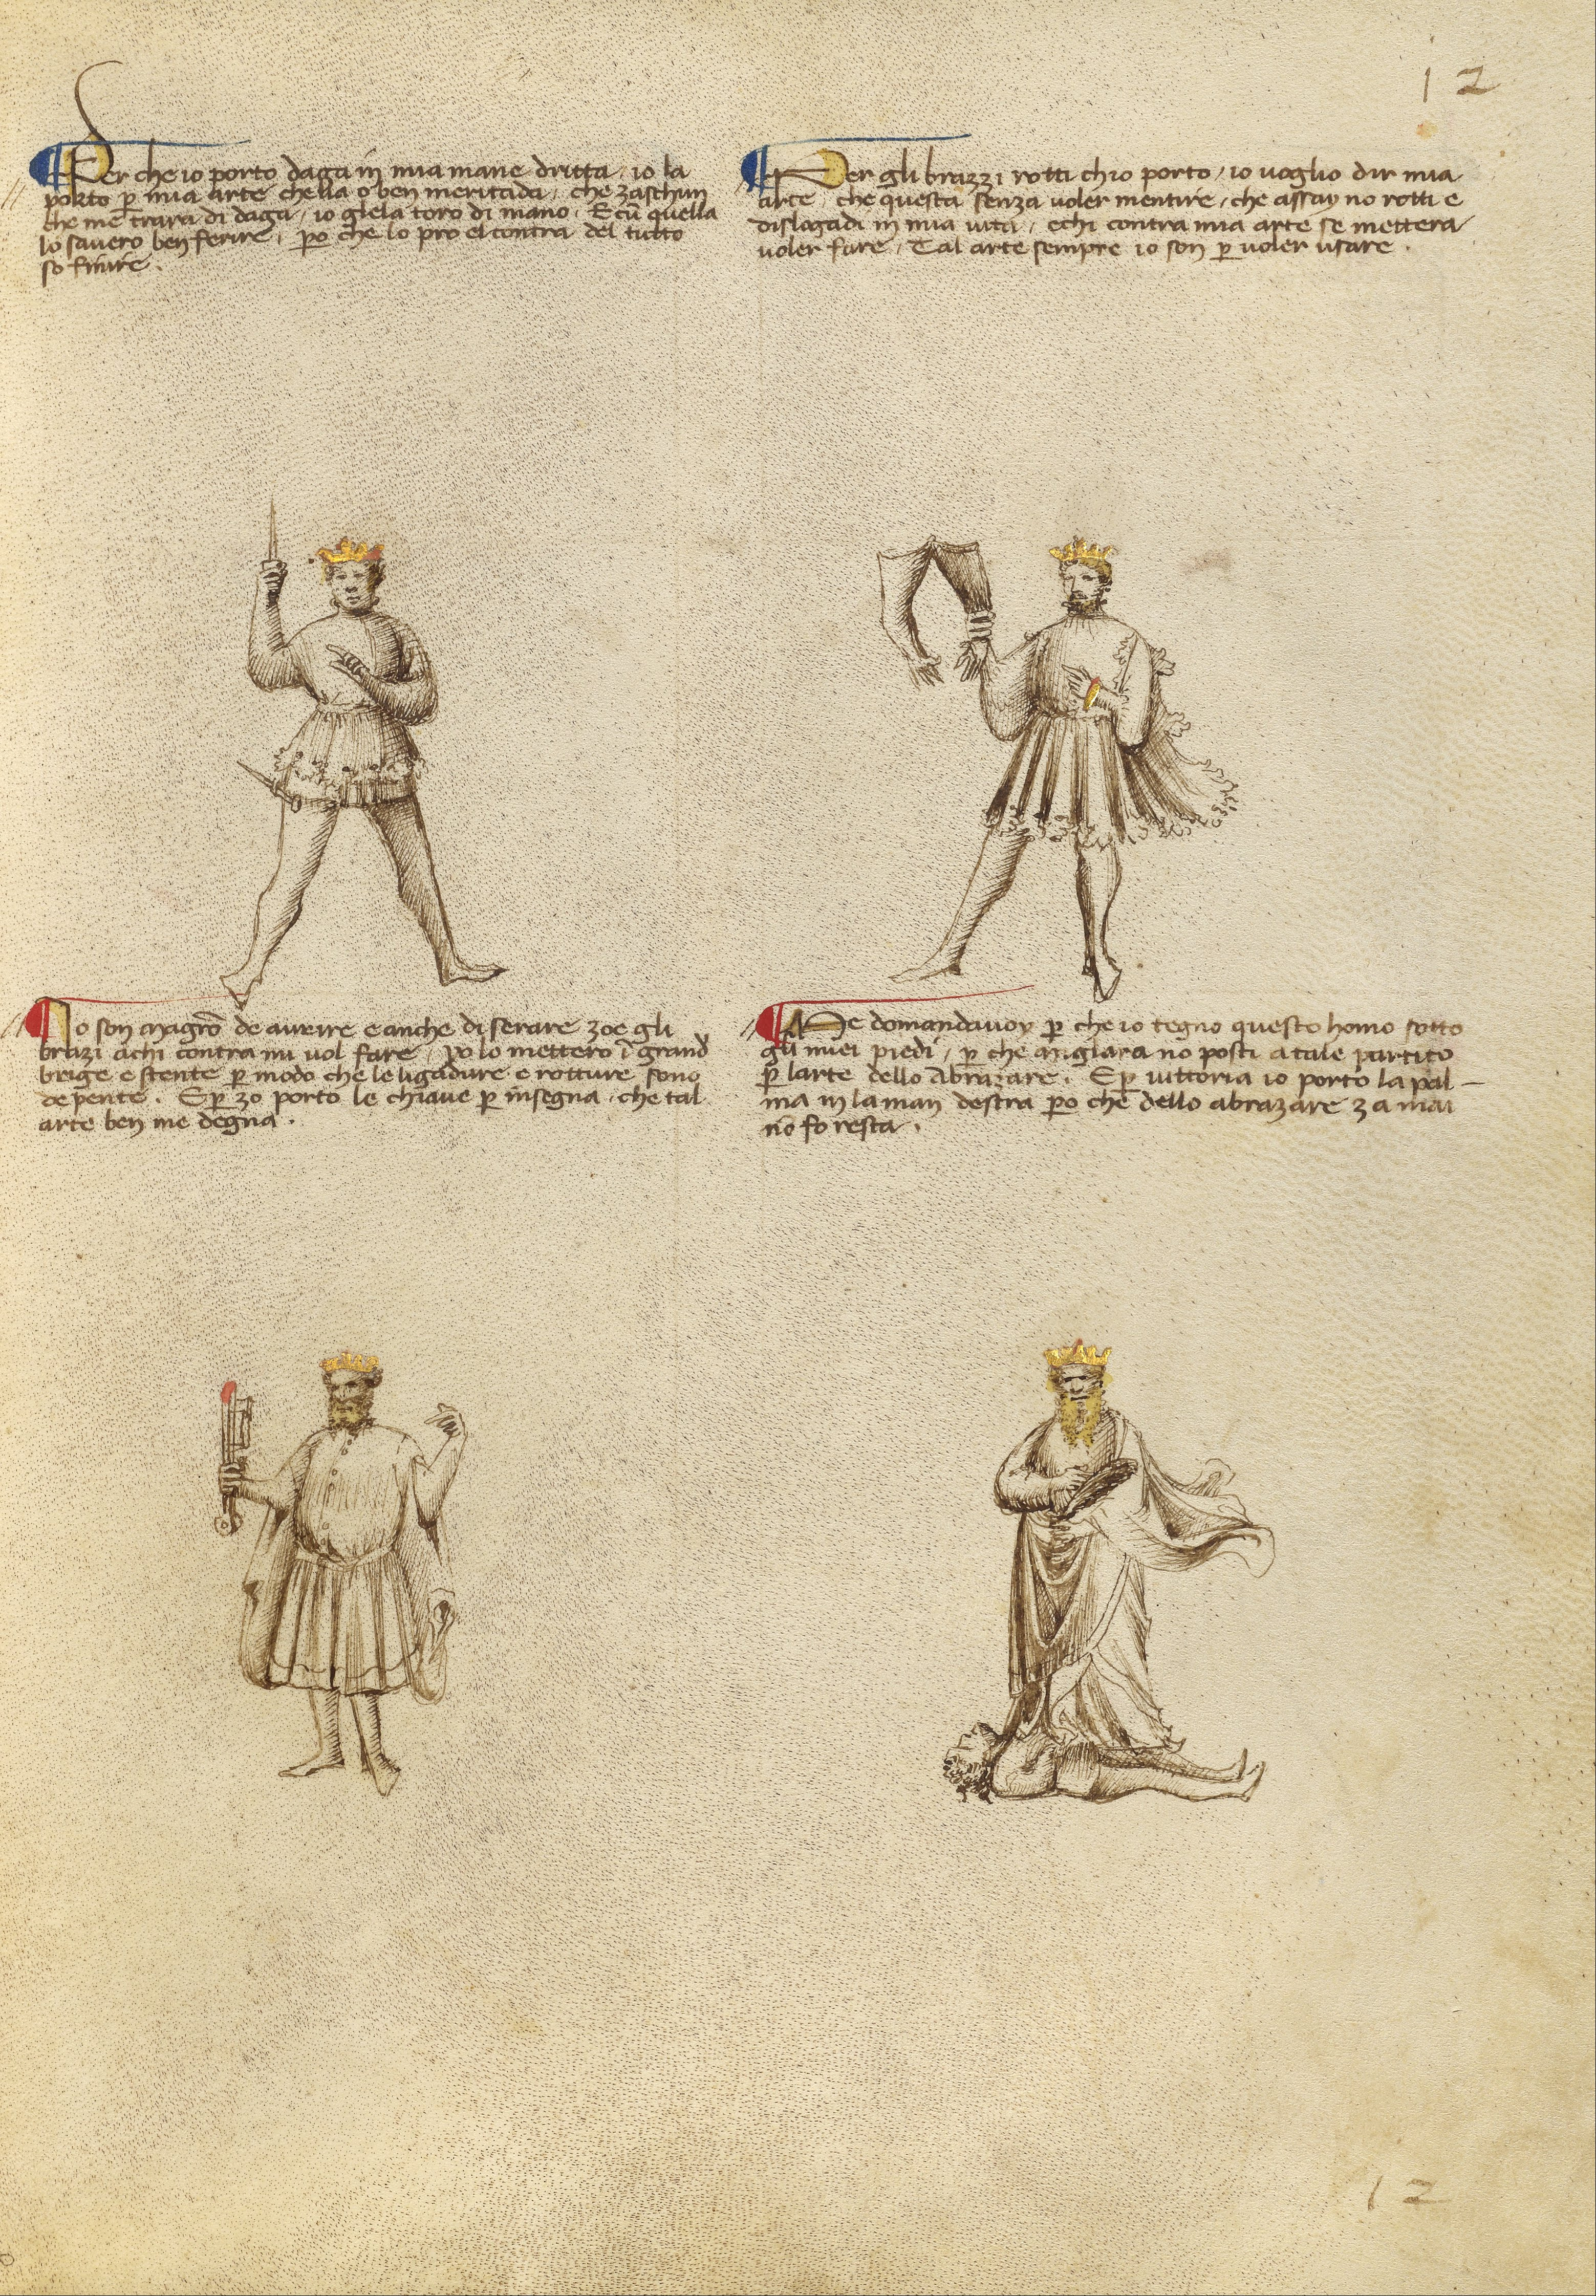 12
Per che io porto daga in mia mane dritta, io la
porto p mia arte chella o ben meritada, che zaschun
che me trara di daga, io glela toro di mano. E cū quella
lo savero ben ferire, po che lo pro el contra del tutto
so finire.
Per gli brazzi rotti ch'io porto, io voglio dir mia
arte, che questa senza voler mentire, che assay no rotti e
dislogadi in mia vita, e chi contra mia arte se mettera
voler fare, Tal arte sempre io son p voler usare.
Io son magrō de avrire e anche di serare zoe gli
brazi a chi contra mi vol fare, po lo mettero ī grand
brige e stente p modo che le ligadure e rotture sono
depente. E p zo porto le chiave p insegna, che tal
arte ben me degna.
Me domandavoy p che io tegno questo homo sotto
gli miei piedi, p che miglara no posti a tale partito
p larte dello abrazare. E p vittoria io porto la pal-
ma in la man destra po che dello abrazare za mai
nō fo resta.
12